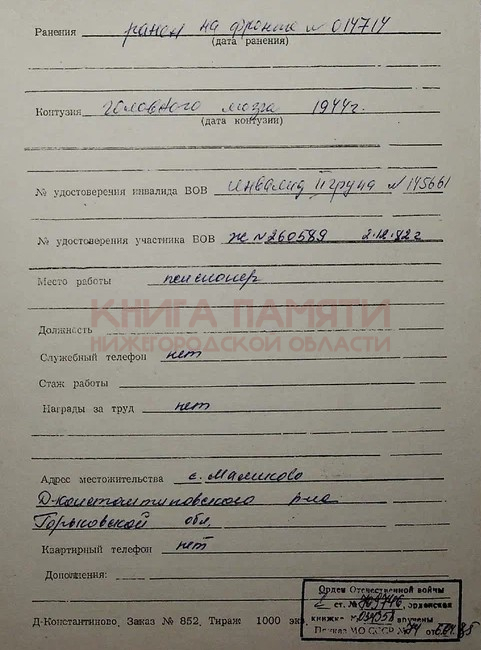 Ранения ранен на фронте № 014714
(дата ранения)
Контузия головного мозга 1944 г.
(дата контузии)
№ удостоверения инвалида ВОВ Инвалид II група № 145661
№ удостоверения участника ВОВ Ж № 260589 2.12.82 г
Место работы пенсионер
КНИГА ПАМЯТИ
Должность
НИЖЕГОРОДСКОЙ ОБЛАСТИ
Служебный телефон нет
Стаж работы
Награды за труд нет
Адрес местожительства с.
Д-константиновского р-на
Горьковской обл.
Квартирный телефон нет
Дополнения:
Орден Отечественной войны
ст. № орденская
книжка № вручены
Приказ МО СССР № 74 от
Д-Константиново. Заказ № 852. Тираж 1000 экз.